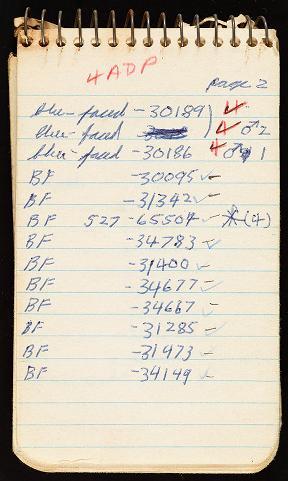 4 ADP
page 2
blue-faced -30189 4
blue-faced 4 ♂ 2
blue-faced -30186 4 ♂ 1
BF -30095 ✓ -
BF -31342 ✓ -
BF 527 -65504 ✓ - (4)
BF -34783 ✓ -
BF -31400 ✓ -
BF -34677 ✓ -
BF -34667 -
BF -31285 -
BF -31473 -
BF -34149 -